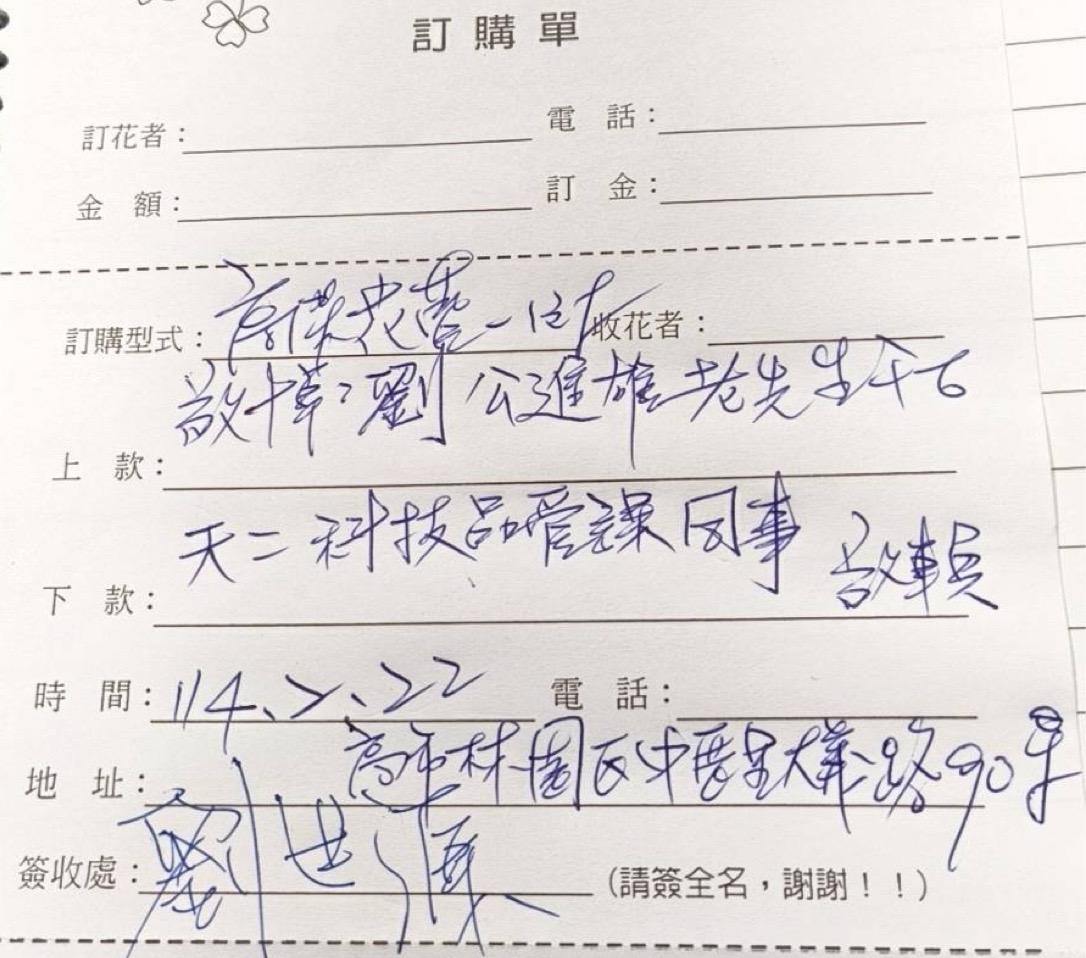 訂購單
訂花者： 電 話：
金 額： 訂 金：
訂購型式：高架花籃一對 收花者：
敬悼：劉公進雄老先生千古
上 款：
天二科技品管課同事 敬輓
下 款：
時 間：114、2、22 電 話：
地 址：高市林園區中厝里大義路90号
簽收處：劉世 (請簽全名，謝謝！！)